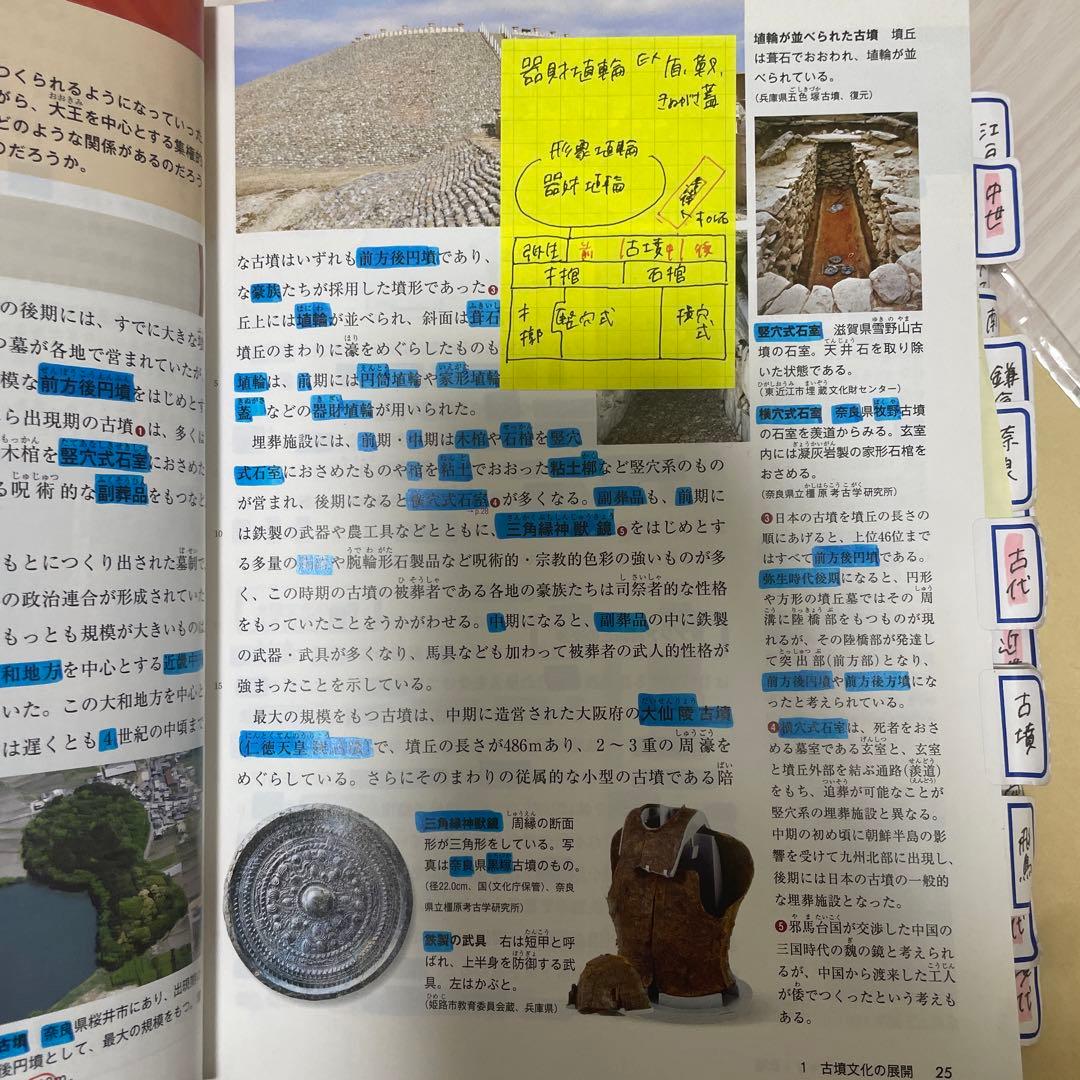 つくられるようになっていった
がら、大王を中心とする集権的
どのような関係があるのだろう
のだろうか。
の後期には、すでに大きな墳
つ墓が各地で営まれていたが、
模な前方後円墳をはじめとす
ら出現期の古墳❶は、多くは
木棺を竪穴式石室におさめた
る呪術的な副葬品をもつなど
もとにつくり出された墓制で、
の政治連合が形成されていた
もっとも規模が大きいものは
和地方を中心とする近畿中
いた。この大和地方を中心と
は遅くとも4世紀の中頃まで
古墳 奈良県桜井市にあり、出現期
後円墳として、最大の規模をもつ。
器財埴輪
きぬがさ蓋
形象埴輪
器財埴輪
弥生 前 古墳 中 後
木棺 石棺
木槨 竪穴式 横穴式
な古墳はいずれも前方後円墳であり、
な豪族たちが採用した墳形であった❸
丘上には埴輪が並べられ、斜面は葺石
墳丘のまわりに濠をめぐらしたものも
5
埴輪は、前期には円筒埴輪や家形埴輪
蓋などの器財埴輪が用いられた。
埋葬施設には、前期・中期は木棺や石棺を竪穴
式石室におさめたものや棺を粘土でおおった粘土槨など竪穴系のもの
が営まれ、後期になると横穴式石室❹が多くなる。副葬品も、前期に
→p.28
10
は鉄製の武器や農工具などとともに、三角縁神獣鏡❺をはじめとす
る多量の銅鏡や腕輪形石製品など呪術的・宗教的色彩の強いものが多
く、この時期の古墳の被葬者である各地の豪族たちは司祭者的な性格
をもっていたことをうかがわせる。中期になると、副葬品の中に鉄製
の武器・武具が多くなり、馬具なども加わって被葬者の武人的性格が
15
強まったことを示している。
最大の規模をもつ古墳は、中期に造営された大阪府の大仙陵古墳
(仁徳天皇陵古墳)で、墳丘の長さが486mあり、2〜3重の周濠を
めぐらしている。さらにそのまわりの従属的な小型の古墳である陪
三角縁神獣鏡 周縁の断面
形が三角形をしている。写
真は奈良県黒塚古墳のもの。
(径22.0cm、国〈文化庁保管〉、奈良
県立橿原考古学研究所)
鉄製の武具 右は短甲と呼
ばれ、上半身を防御する武
具。左はかぶと。
(姫路市教育委員会蔵、兵庫県)
埴輪が並べられた古墳 墳丘
は葺石でおおわれ、埴輪が並
べられている。
(兵庫県五色塚古墳、復元)
竪穴式石室 滋賀県雪野山古
墳の石室。天井石を取り除
いた状態である。
(東近江市埋蔵文化財センター)
横穴式石室 奈良県牧野古墳
の石室を羨道からみる。玄室
内には凝灰岩製の家形石棺を
おさめる。
(奈良県立橿原考古学研究所)
❸日本の古墳を墳丘の長さの
順にあげると、上位46位まで
はすべて前方後円墳である。
弥生時代後期になると、円形
や方形の墳丘墓ではその周
溝に陸橋部をもつものが現
れるが、その陸橋部が発達し
て突出部(前方部)となり、
前方後円墳や前方後方墳にな
ったと考えられている。
❹横穴式石室は、死者をおさ
める墓室である玄室と、玄室
と墳丘外部を結ぶ通路(羨道)
をもち、追葬が可能なことが
竪穴系の埋葬施設と異なる。
中期の初め頃に朝鮮半島の影
響を受けて九州北部に出現し、
後期には日本の古墳の一般的
な埋葬施設となった。
❺邪馬台国が交渉した中国の
三国時代の魏の鏡と考えられ
るが、中国から渡来した工人
が倭でつくったという考えも
ある。
1 古墳文化の展開 25
江戸
中世
南
鎌倉
奈良
古代
近
古墳
飛鳥
代
代